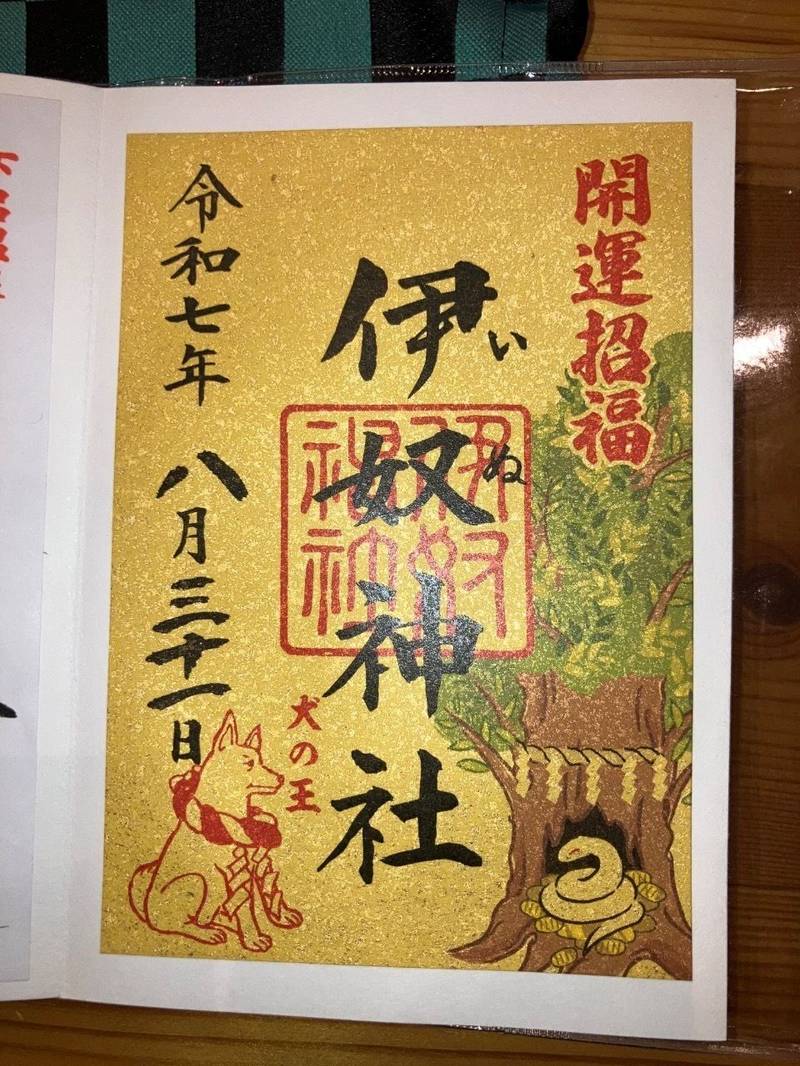 開運招福
伊奴神社
いぬ
伊奴
神社
犬の王
令和七年 八月三十一日